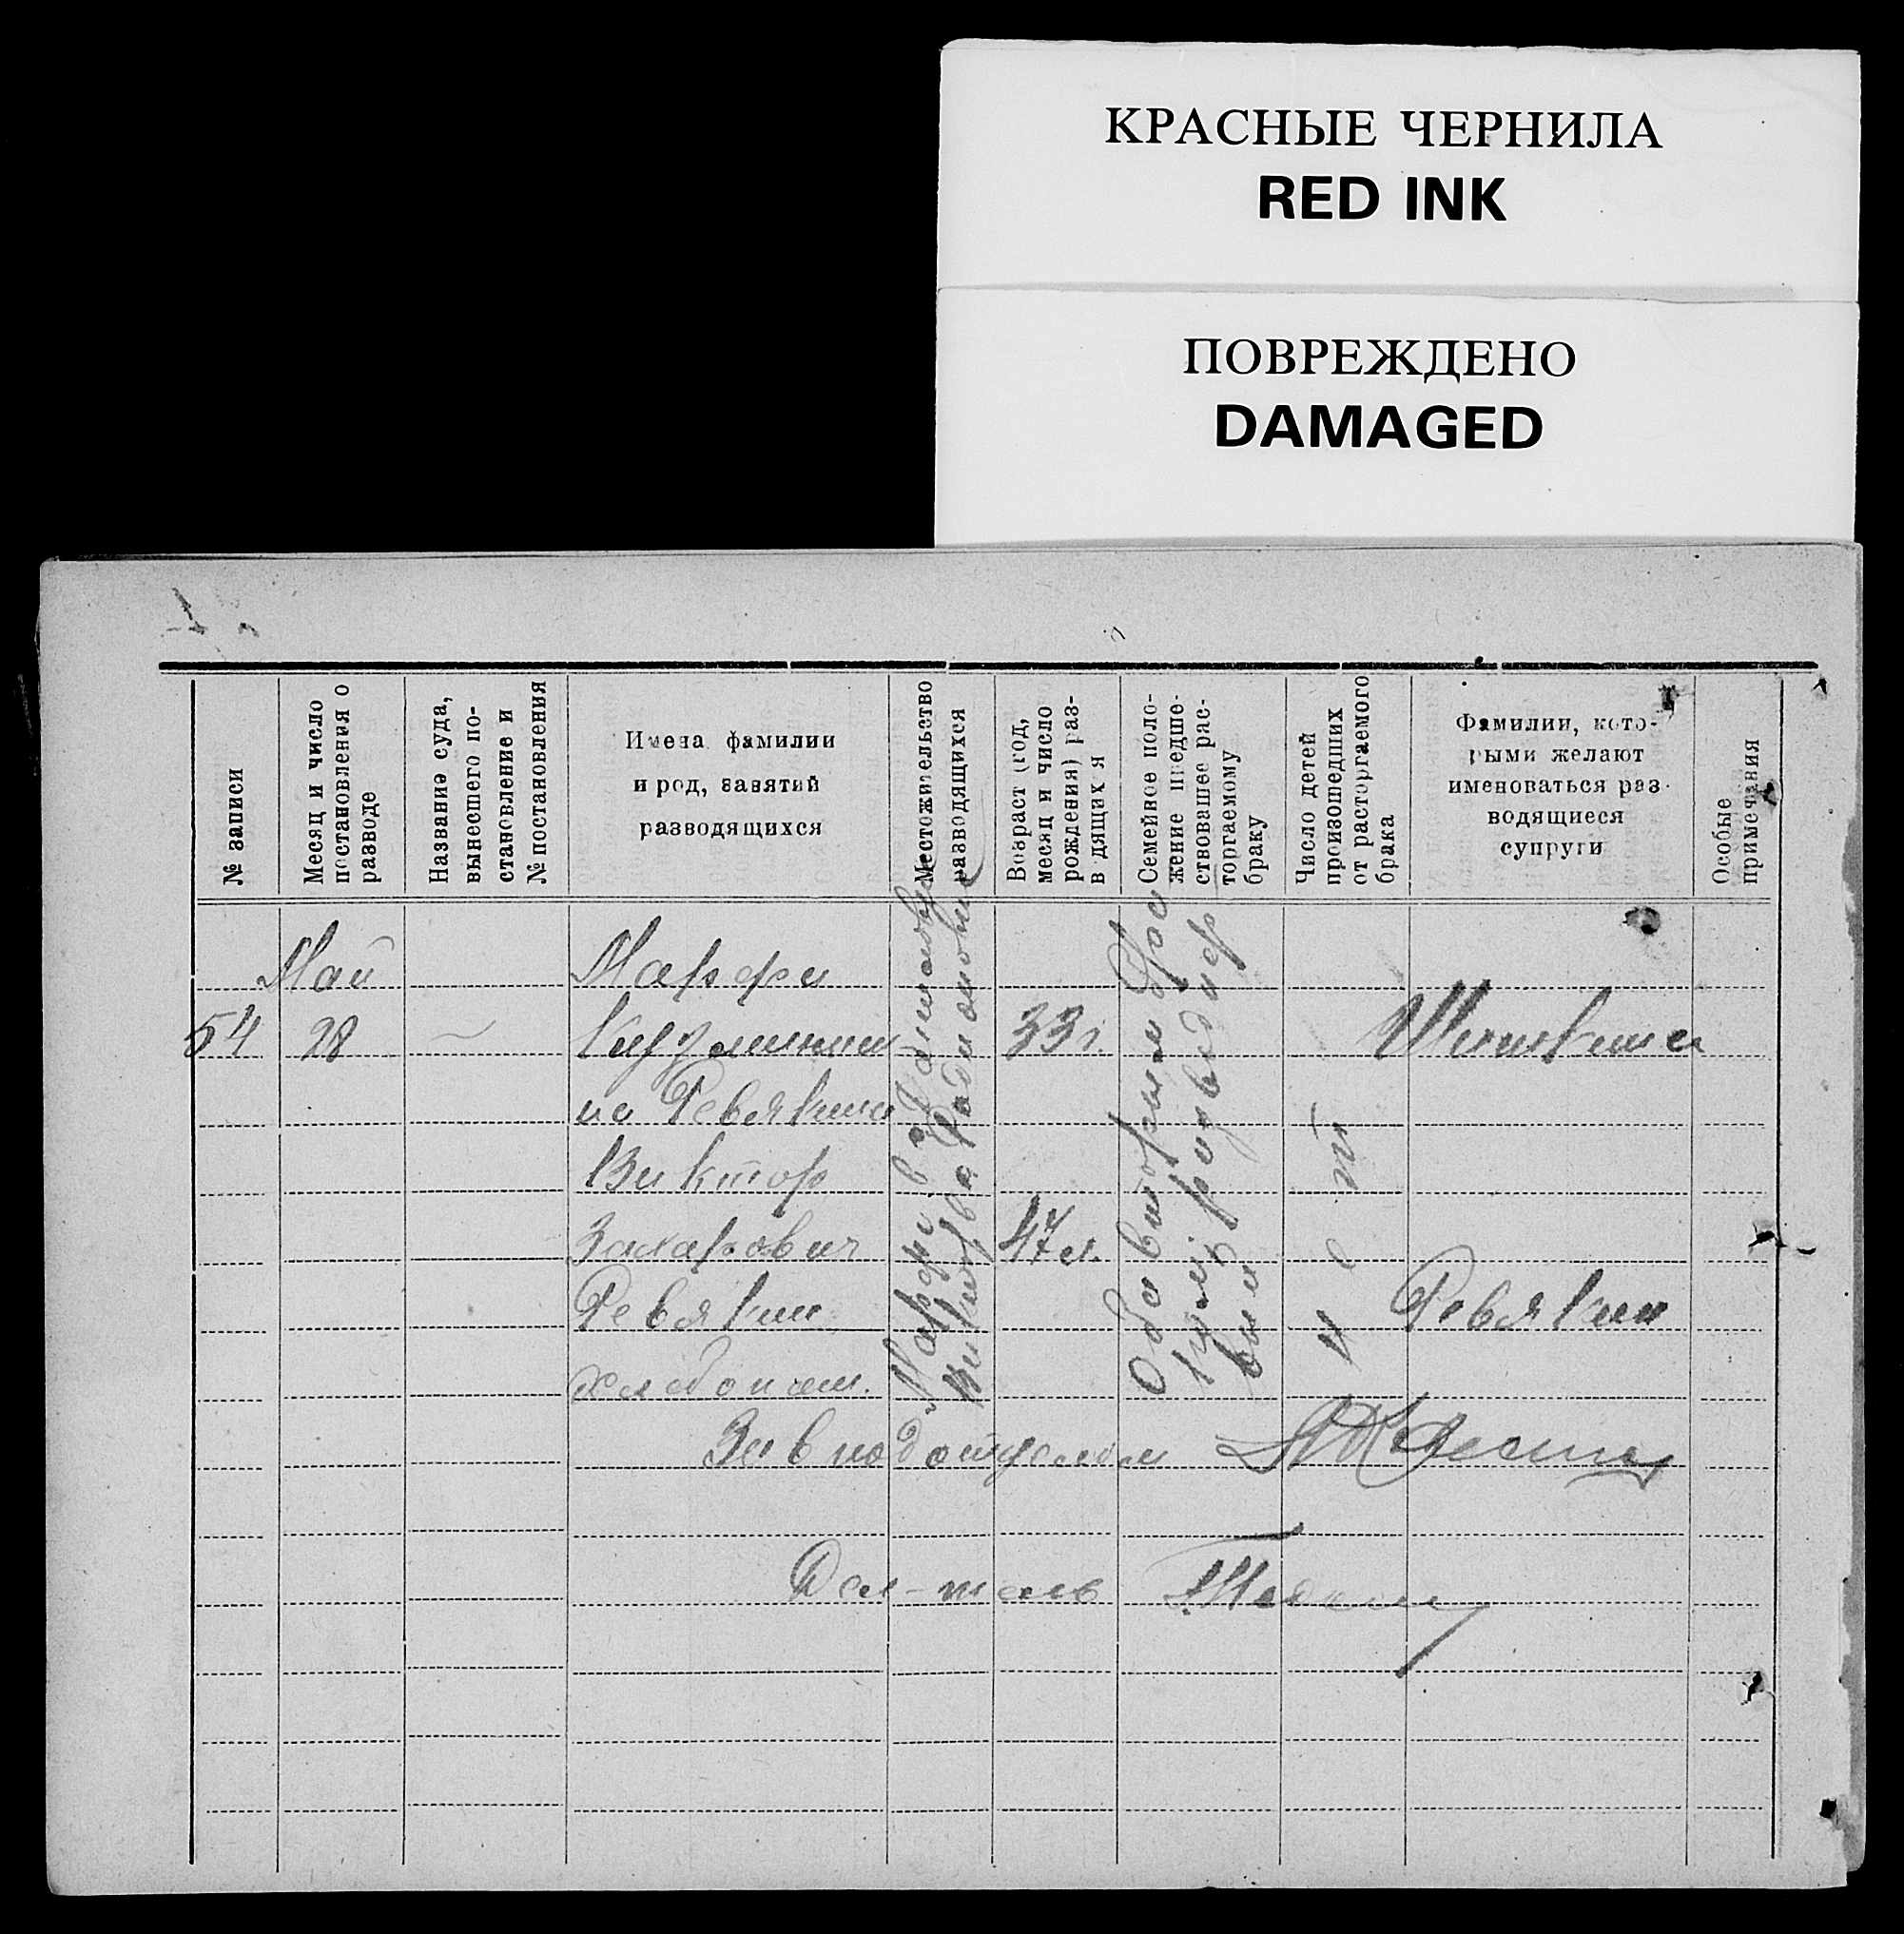 КРАСНЫЕ ЧЕРНИЛА
RED INK
ПОВРЕЖДЕНО
DAMAGED
№ записи
Месяц и число
постановления о
разводе
Название суда,
вынесшего по-
становление и
№ постановления
Имена фамилии
и род, занятий
разводящихся
Местожительство
разводящихся
Возраст (год,
месяц и число
рождения) раз-
в дящихся
Семейное поло-
жение предше-
ствовавшее рас-
торгаемому
браку
Число детей
происшедших
от расторгаемого
брака
Фамилии, кото-
рыми желают
именоваться раз-
водящиеся
супруги
Особые
примечания
Май
54
28
Марфа
Кузминиш
на Ревякина
Виктор
Захарович
Ревякин
хлебопаш.
Марфа в д.
Виктор в д. Родионовке
33 г.
47 л.
Оба вторым бра
ком, развед пер
вым
нет
Ревякин
Зав подотделом
Дел-тель